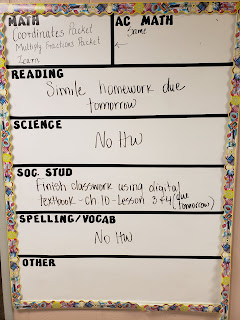 MATH
Coordinates Packet
Multiply Fractions Packet
Zearn
AC MATH
Same
←
READING
Simile homework due
tomorrow
SCIENCE
No HW
SOC. STUD
Finish classwork using digital
textbook - Ch. 10 - Lesson 3 & 4 (due
tomorrow)
SPELLING/VOCAB
No HW
OTHER